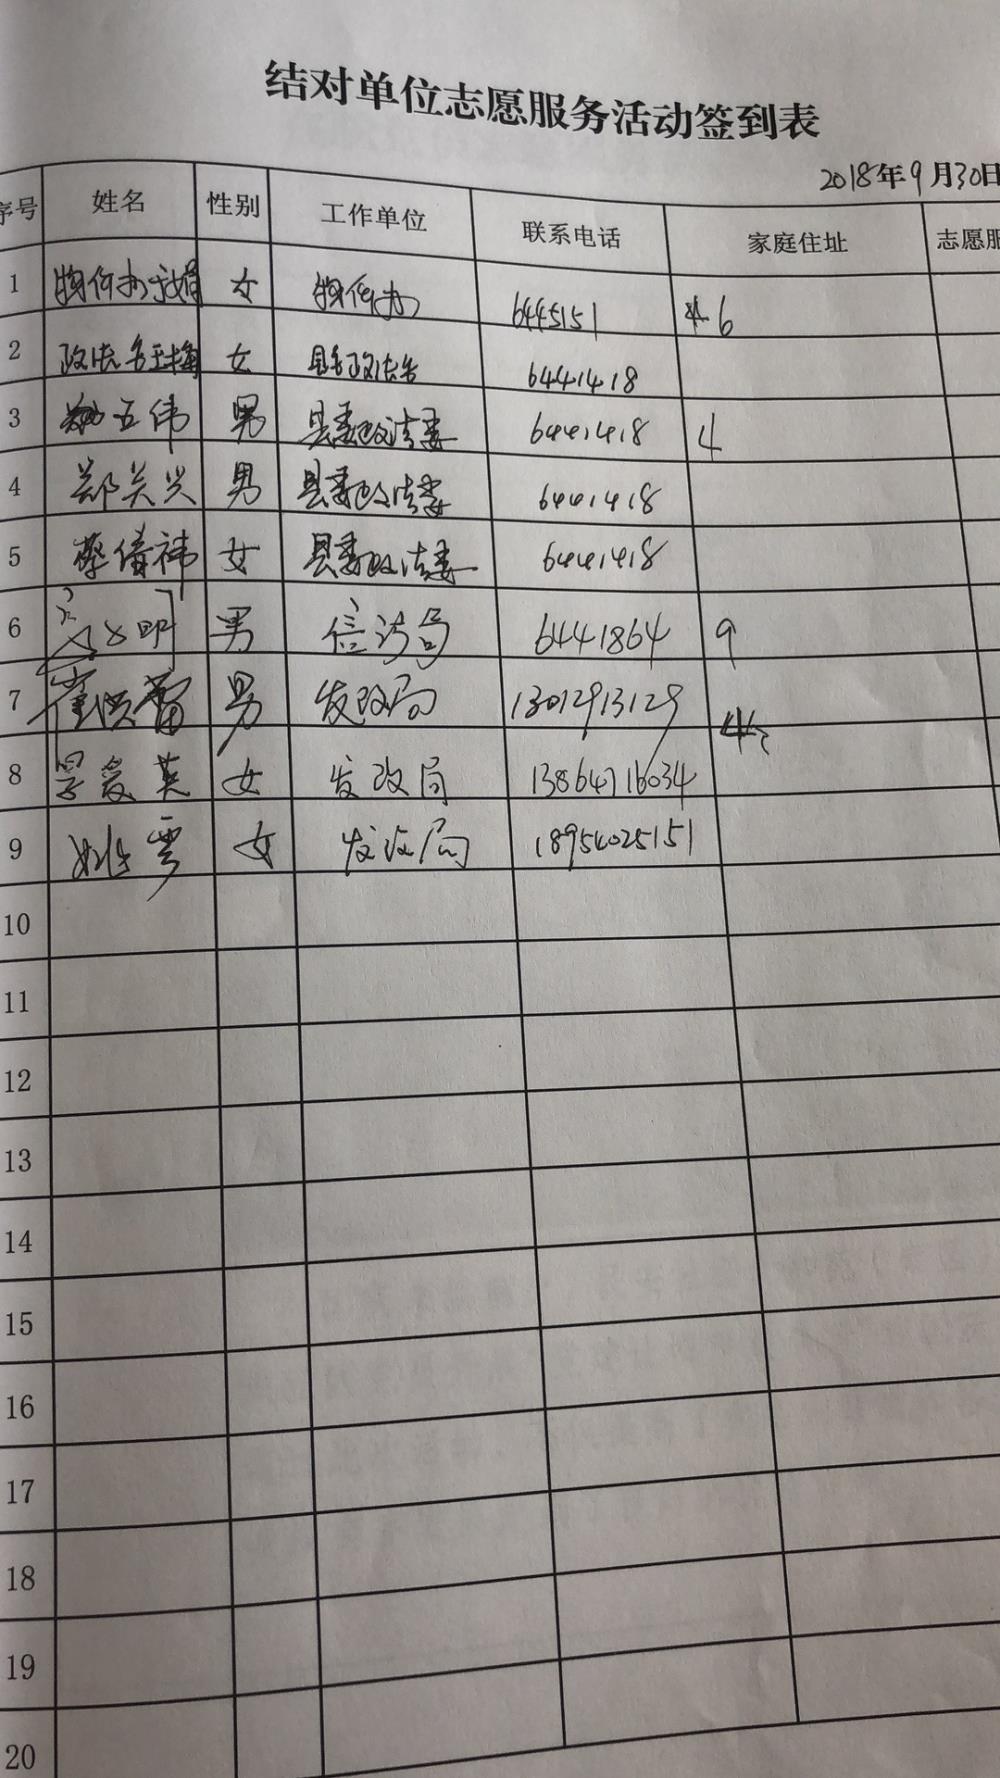 结对单位志愿服务活动签到表
2018年9月30日
序号 姓名 性别 工作单位 联系电话 家庭住址 志愿服
1 物价办于娟 女 物价办 6445151 6
2 女 县委政法委 6441418
3 五伟 男 县委政法委 6441418 4
4 郑关兴 男 县委政法委 6441418
5 蔡倩祎 女 县委政法委 6441418
6 男 信访局 6441864 9
7 崔洪雷 男 发改局 13012913129
8 景爱英 女 发改局 13864716034
9 姚雪 女 发改局 18954025151
10
11
12
13
14
15
16
17
18
19
20